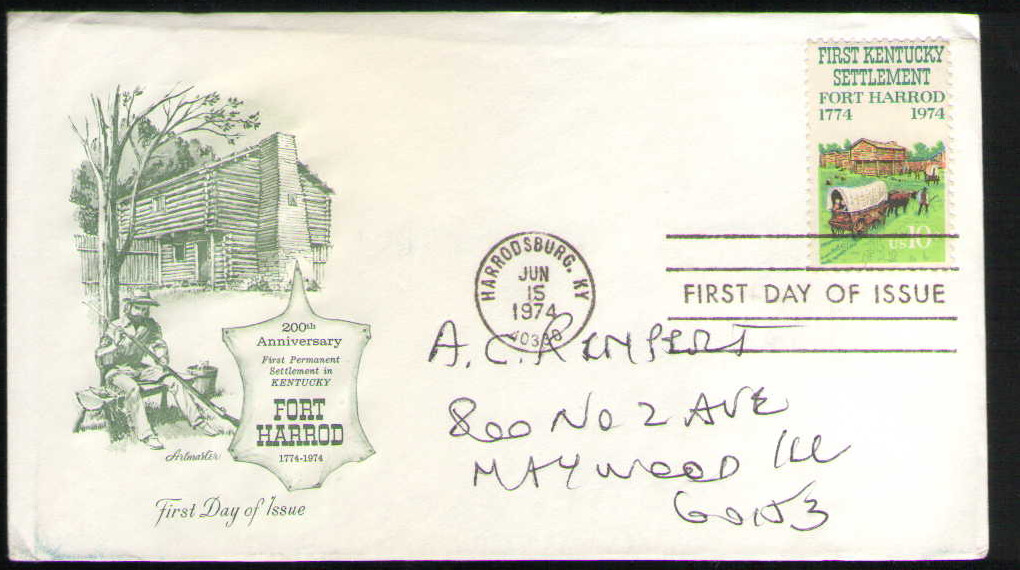 FIRST KENTUCKY
SETTLEMENT
FORT HARROD
1774 1974
US 10
HARRODSBURG, KY
JUN
15
1974
40330
FIRST DAY OF ISSUE
200th
Anniversary
First Permanent
Settlement in
KENTUCKY
FORT
HARROD
1774-1974
Artmaster
First Day of Issue
A. C. REMPERT
800 No 2 AVE
MAYWOOD Ill
60153